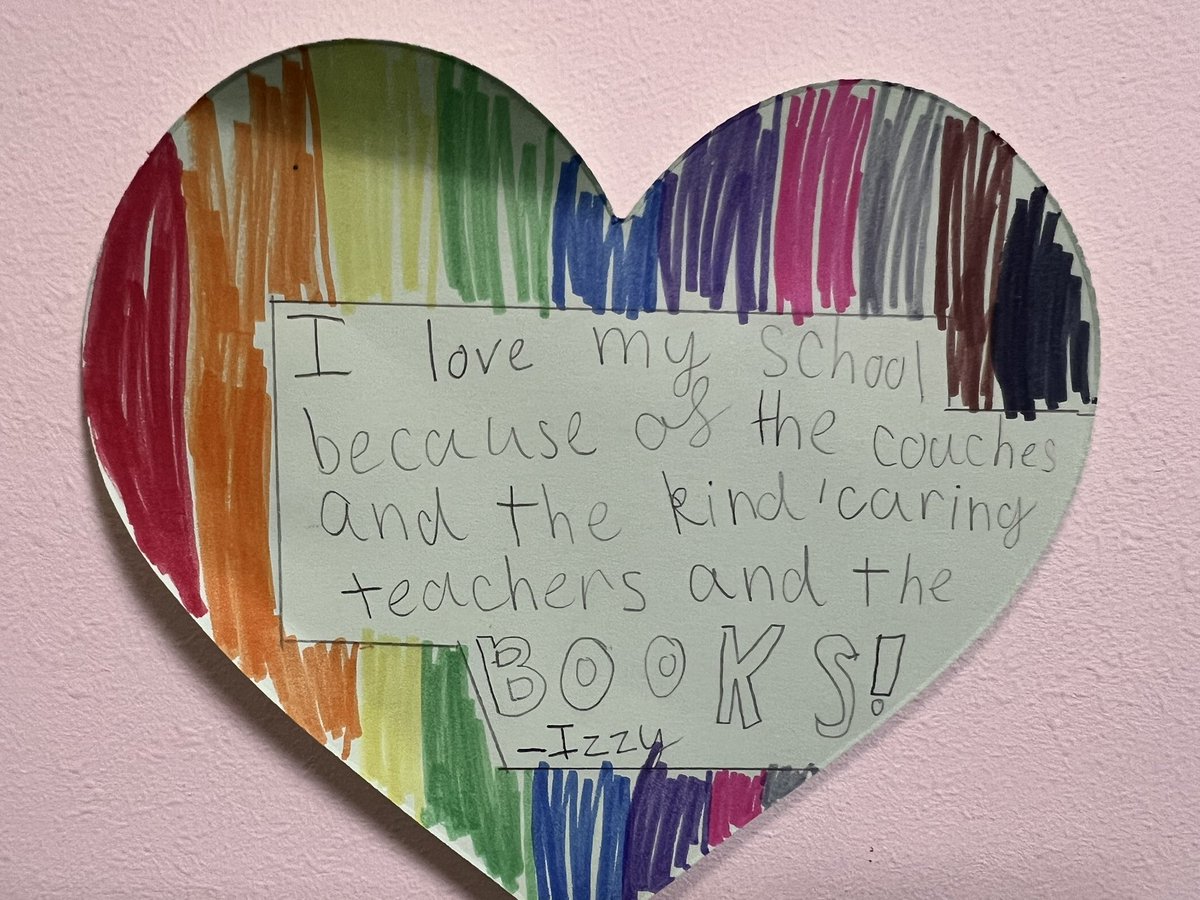 I love my school
because of the couches
and the kind 'caring
teachers and the
BOOKS!
-Izzy